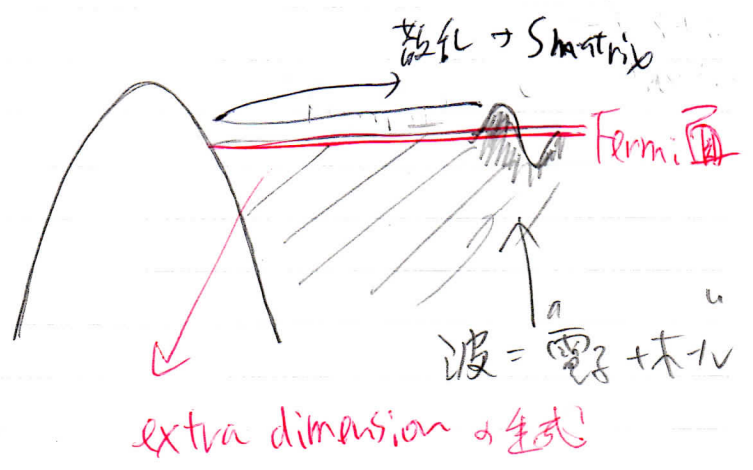 散乱 → Smatrix
Fermi面
波 = 電子 + ホール
extra dimension の生成